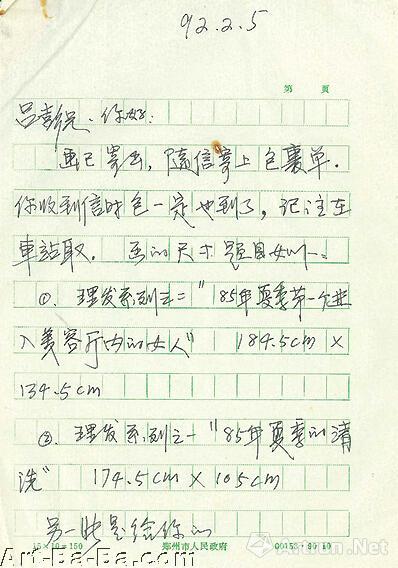 92.2.5
第 頁
你好：
画已寄出，随信寄上包裹单．
你收到信时包一定也到了，记住在
車站取．画的尺寸题目如下：
①．理发系列之二"85年夏季第一个进
入美容厅内的女人" 184.5cm ×
134.5cm
②．理发系列之一"85年夏季的清
洗" 174.5cm × 105cm
另一些是给你的
15×10=150 郑州市人民政府 00153·90·10
Art-Ba-Ba.com
Artron.Net